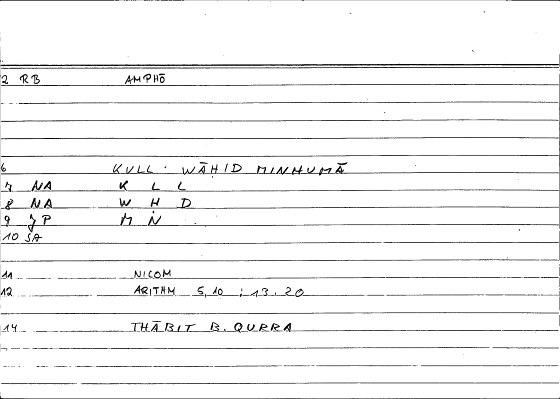 2 RB AMPHŌ
6 KULL WĀḤID MINHUMĀ
7 NA K L L
8 NA W Ḥ D
9 JP M N
10 SA
11 NICOM
12 ARITHM 5,10 ; 13.20
14 THĀBIT B. QURRA